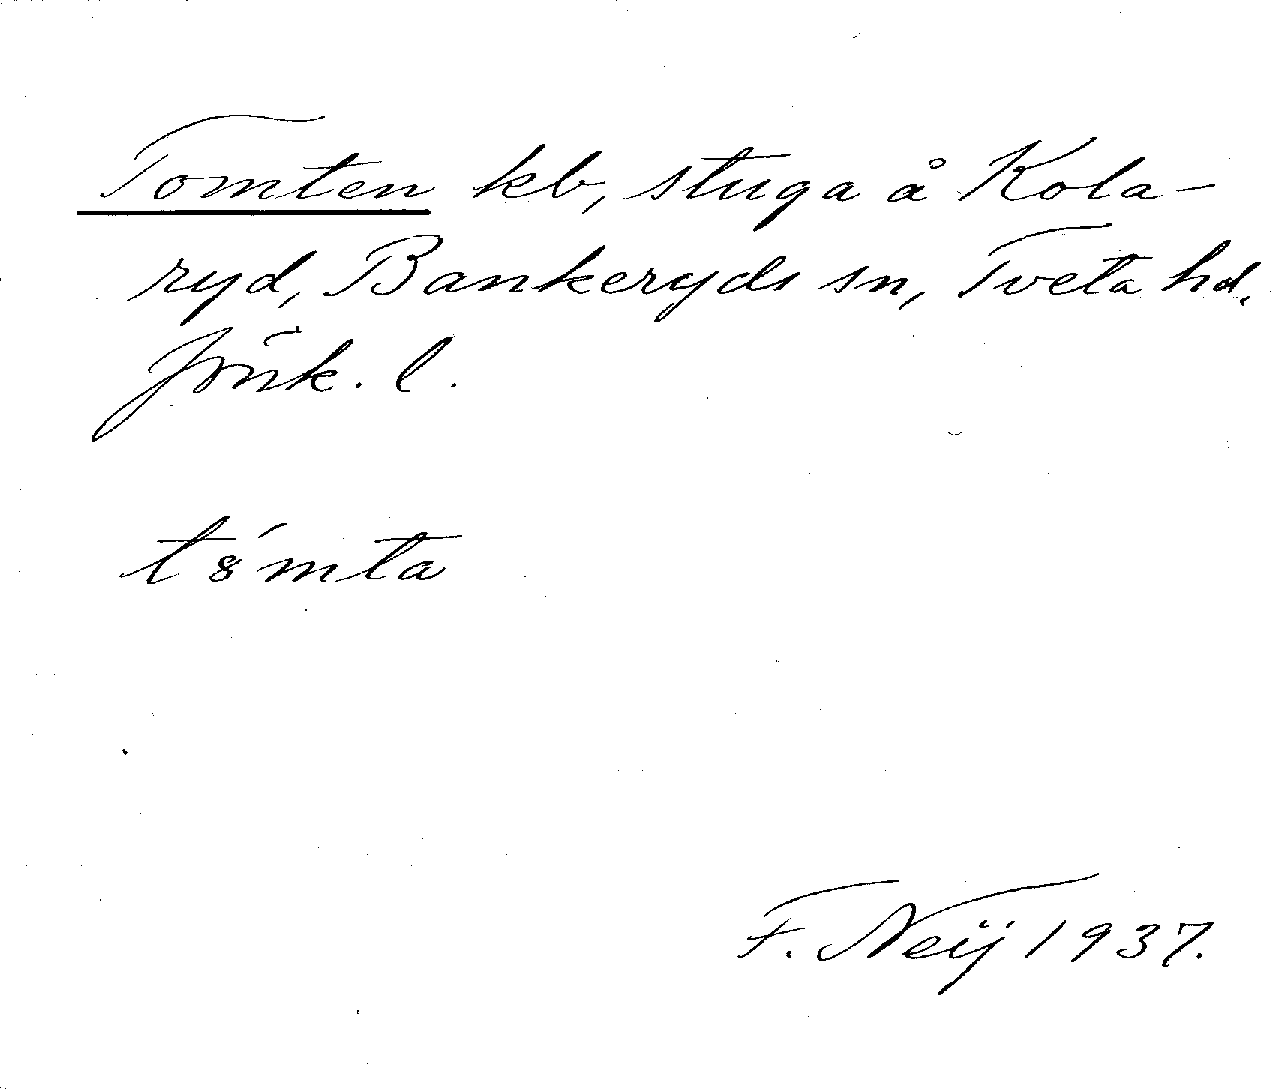 Tomten kb, stuga å Kola-
ryd, Bankeryds sn, Tveta hd.
Jönk. l.
F. Neij 1937.